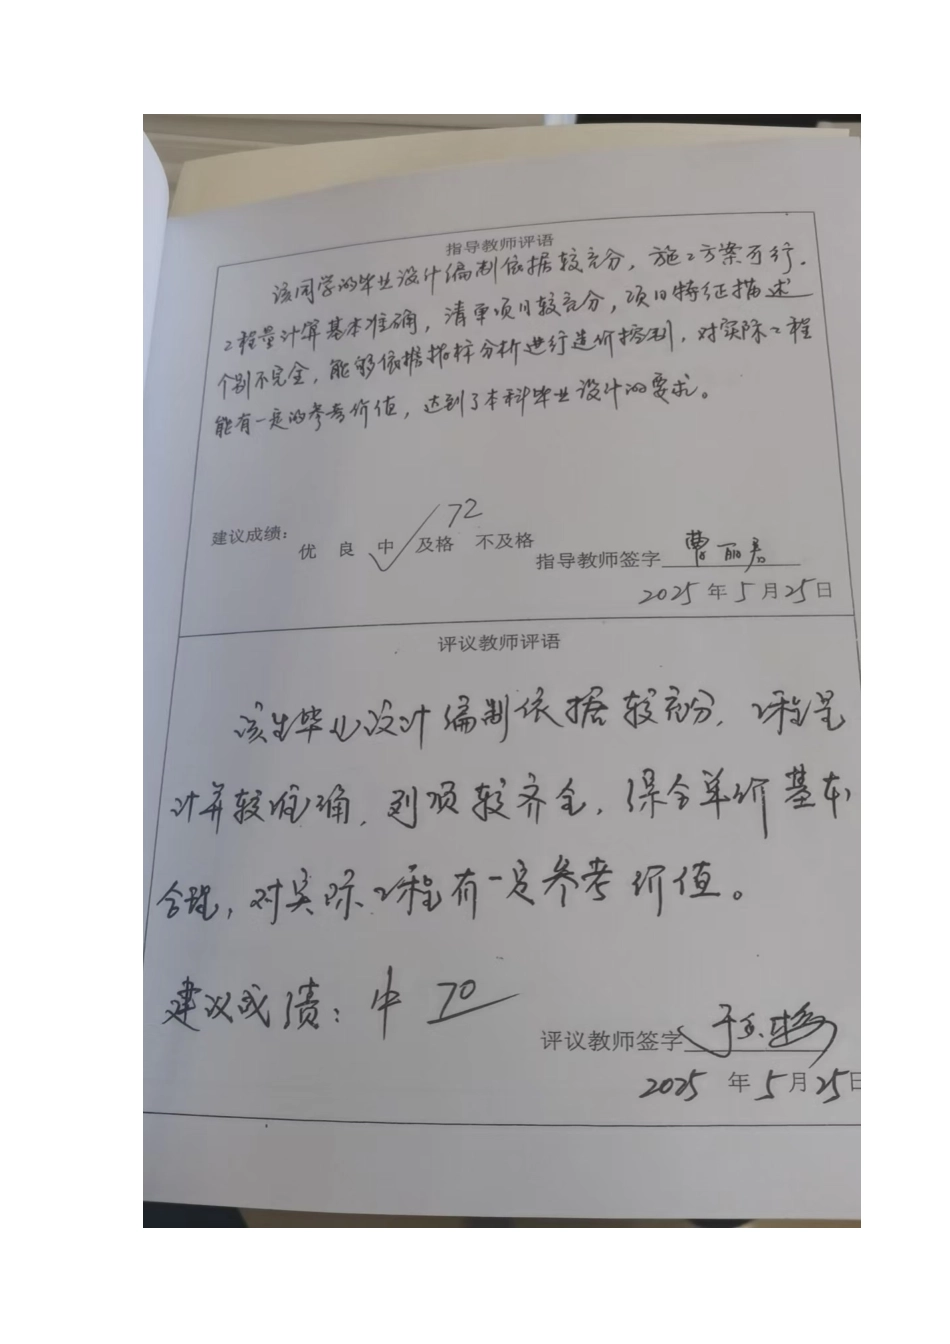 指导教师评语
该同学的毕业设计编制依据较充分，施工方案可行，
工程量计算基本准确，清单项目较充分，项目特征描述
个别不完全，能够依据指标分析进行造价控制，对实际工程
能有一定的参考价值，达到了本科毕业设计的要求。
72
建议成绩：
优 良 中 及格 不及格
指导教师签字 曹丽君
2025年5月25日
评议教师评语
该生毕业设计编制依据较充分，工程量
计算较准确，列项较齐全，综合单价基本
合理，对实际工程有一定参考价值。
建议成绩：中 70
评议教师签字
2025年5月25日